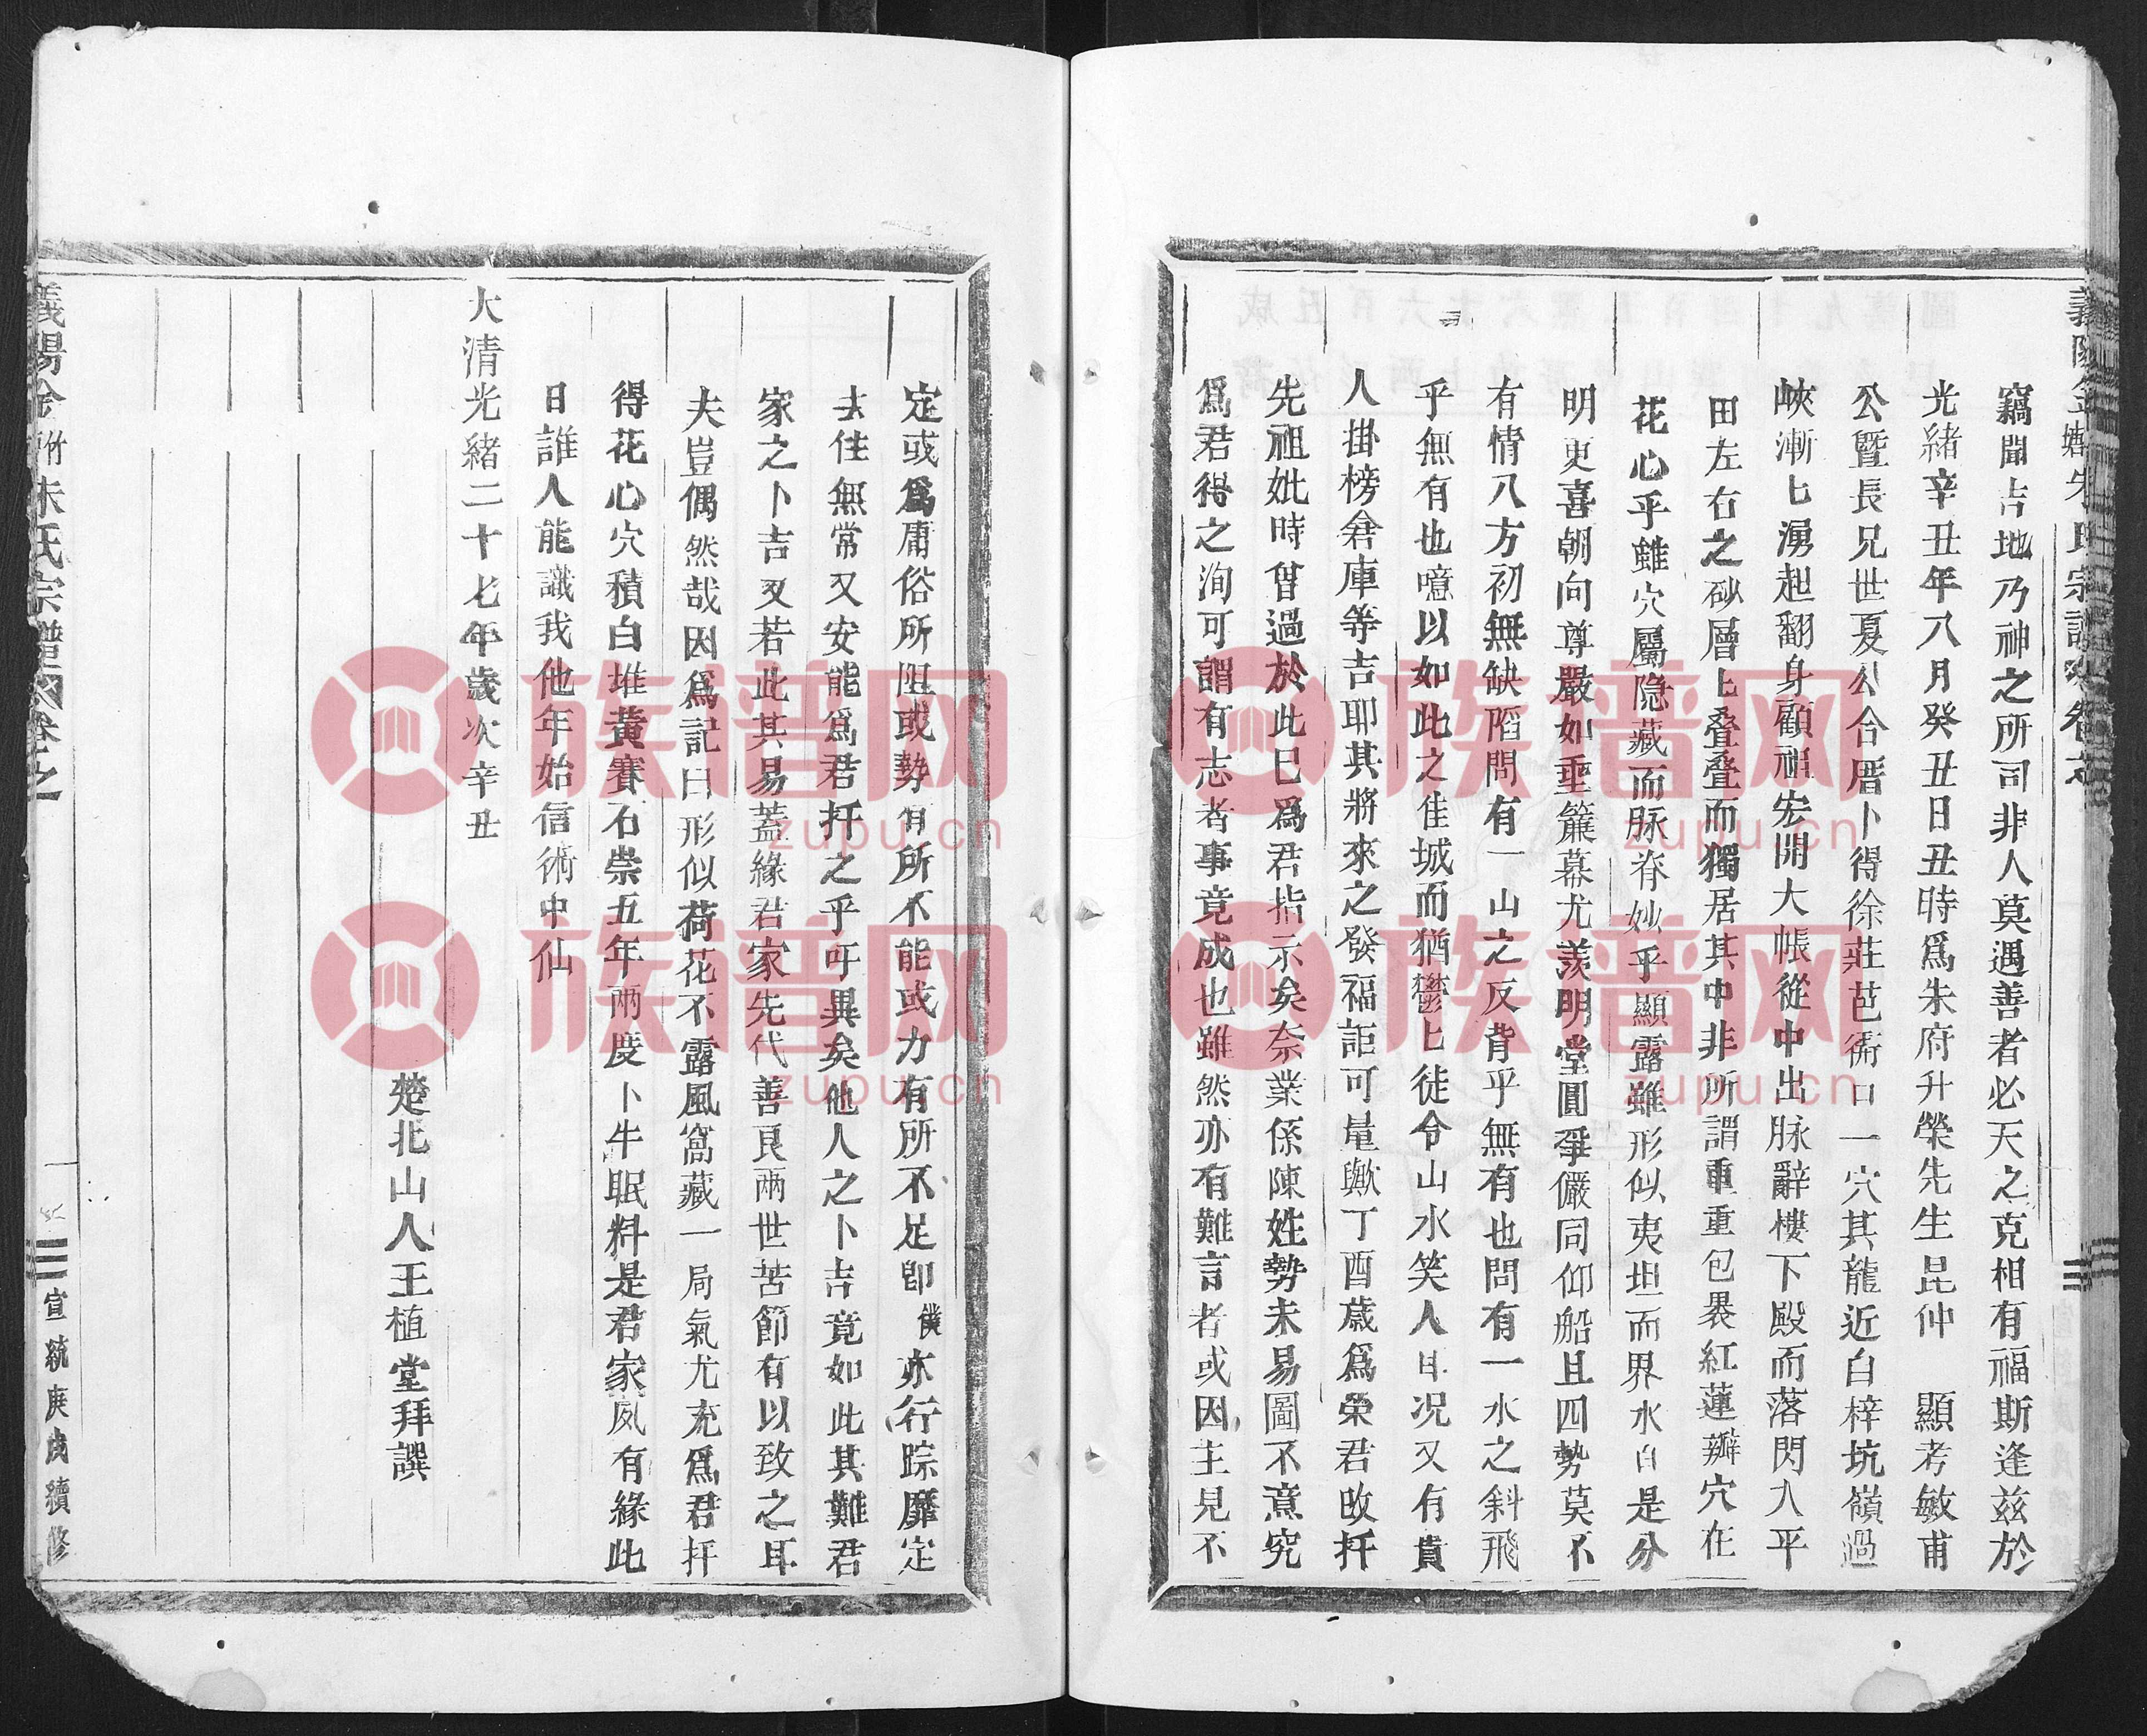 竊聞吉地乃神之所司非人莫遇善者必天之克相有福斯逢兹於
光緒辛丑年八月癸丑日丑時爲朱府升榮先生昆仲 顯考敏甫
公暨長兄世夏公合厝卜得徐莊芭衕口一穴其龍近白梓坑嶺過
峽漸匕湧起翻身顧祖宏開大帳從中出脉辭樓下殿而落閃入平
田左右之砂層匕叠叠而獨居其中非所謂重重包裹紅蓮瓣穴在
花心乎雖穴屬隐藏而脉脊妙乎顯露雖形似夷坦而界水自是分
明更喜朝向尊嚴如垂簾幕尤羡明堂圓爭儼同仰船且四勢莫不
有情八方初無缺陷問有一山之反背乎無有也問有一水之斜飛
乎無有也噫以如此之佳城而猶鬱匕徒令山水笑人曰况又有貴
人掛榜倉庫等吉耶其將來之發福詎可量歟丁酉歲爲榮君啟扦
先祖妣時曾過於此已爲君指示矣奈業係陳姓勢未易圖不意究
爲君得之洵可謂有志者事竟成也雖然亦有難言者或因主見不
定或爲庸俗所阻或勢有所不能或力有所不足卽僕亦行踪靡定
去住無常又安能爲君扦之乎吁異矣他人之卜吉竟如此其難君
家之卜吉又若此其易蓋緣君家先代善良兩世苦節有以致之耳
夫豈偶然哉因爲記曰形似荷花不露風窩藏一局氣尤充爲君扦
得花心穴積白堆黃賽石崇五年兩度卜牛眠料是君家夙有緣此
日誰人能識我他年始信術中仙
大清光緒二十七年歲次辛丑
楚北山人王植堂拜譔
義陽金附朱氏宗譜卷之
一
宣統庚戌續修
族谱网
zupu.cn
族谱网
zupu.cn
族谱网
zupu.cn
族谱网
zupu.cn